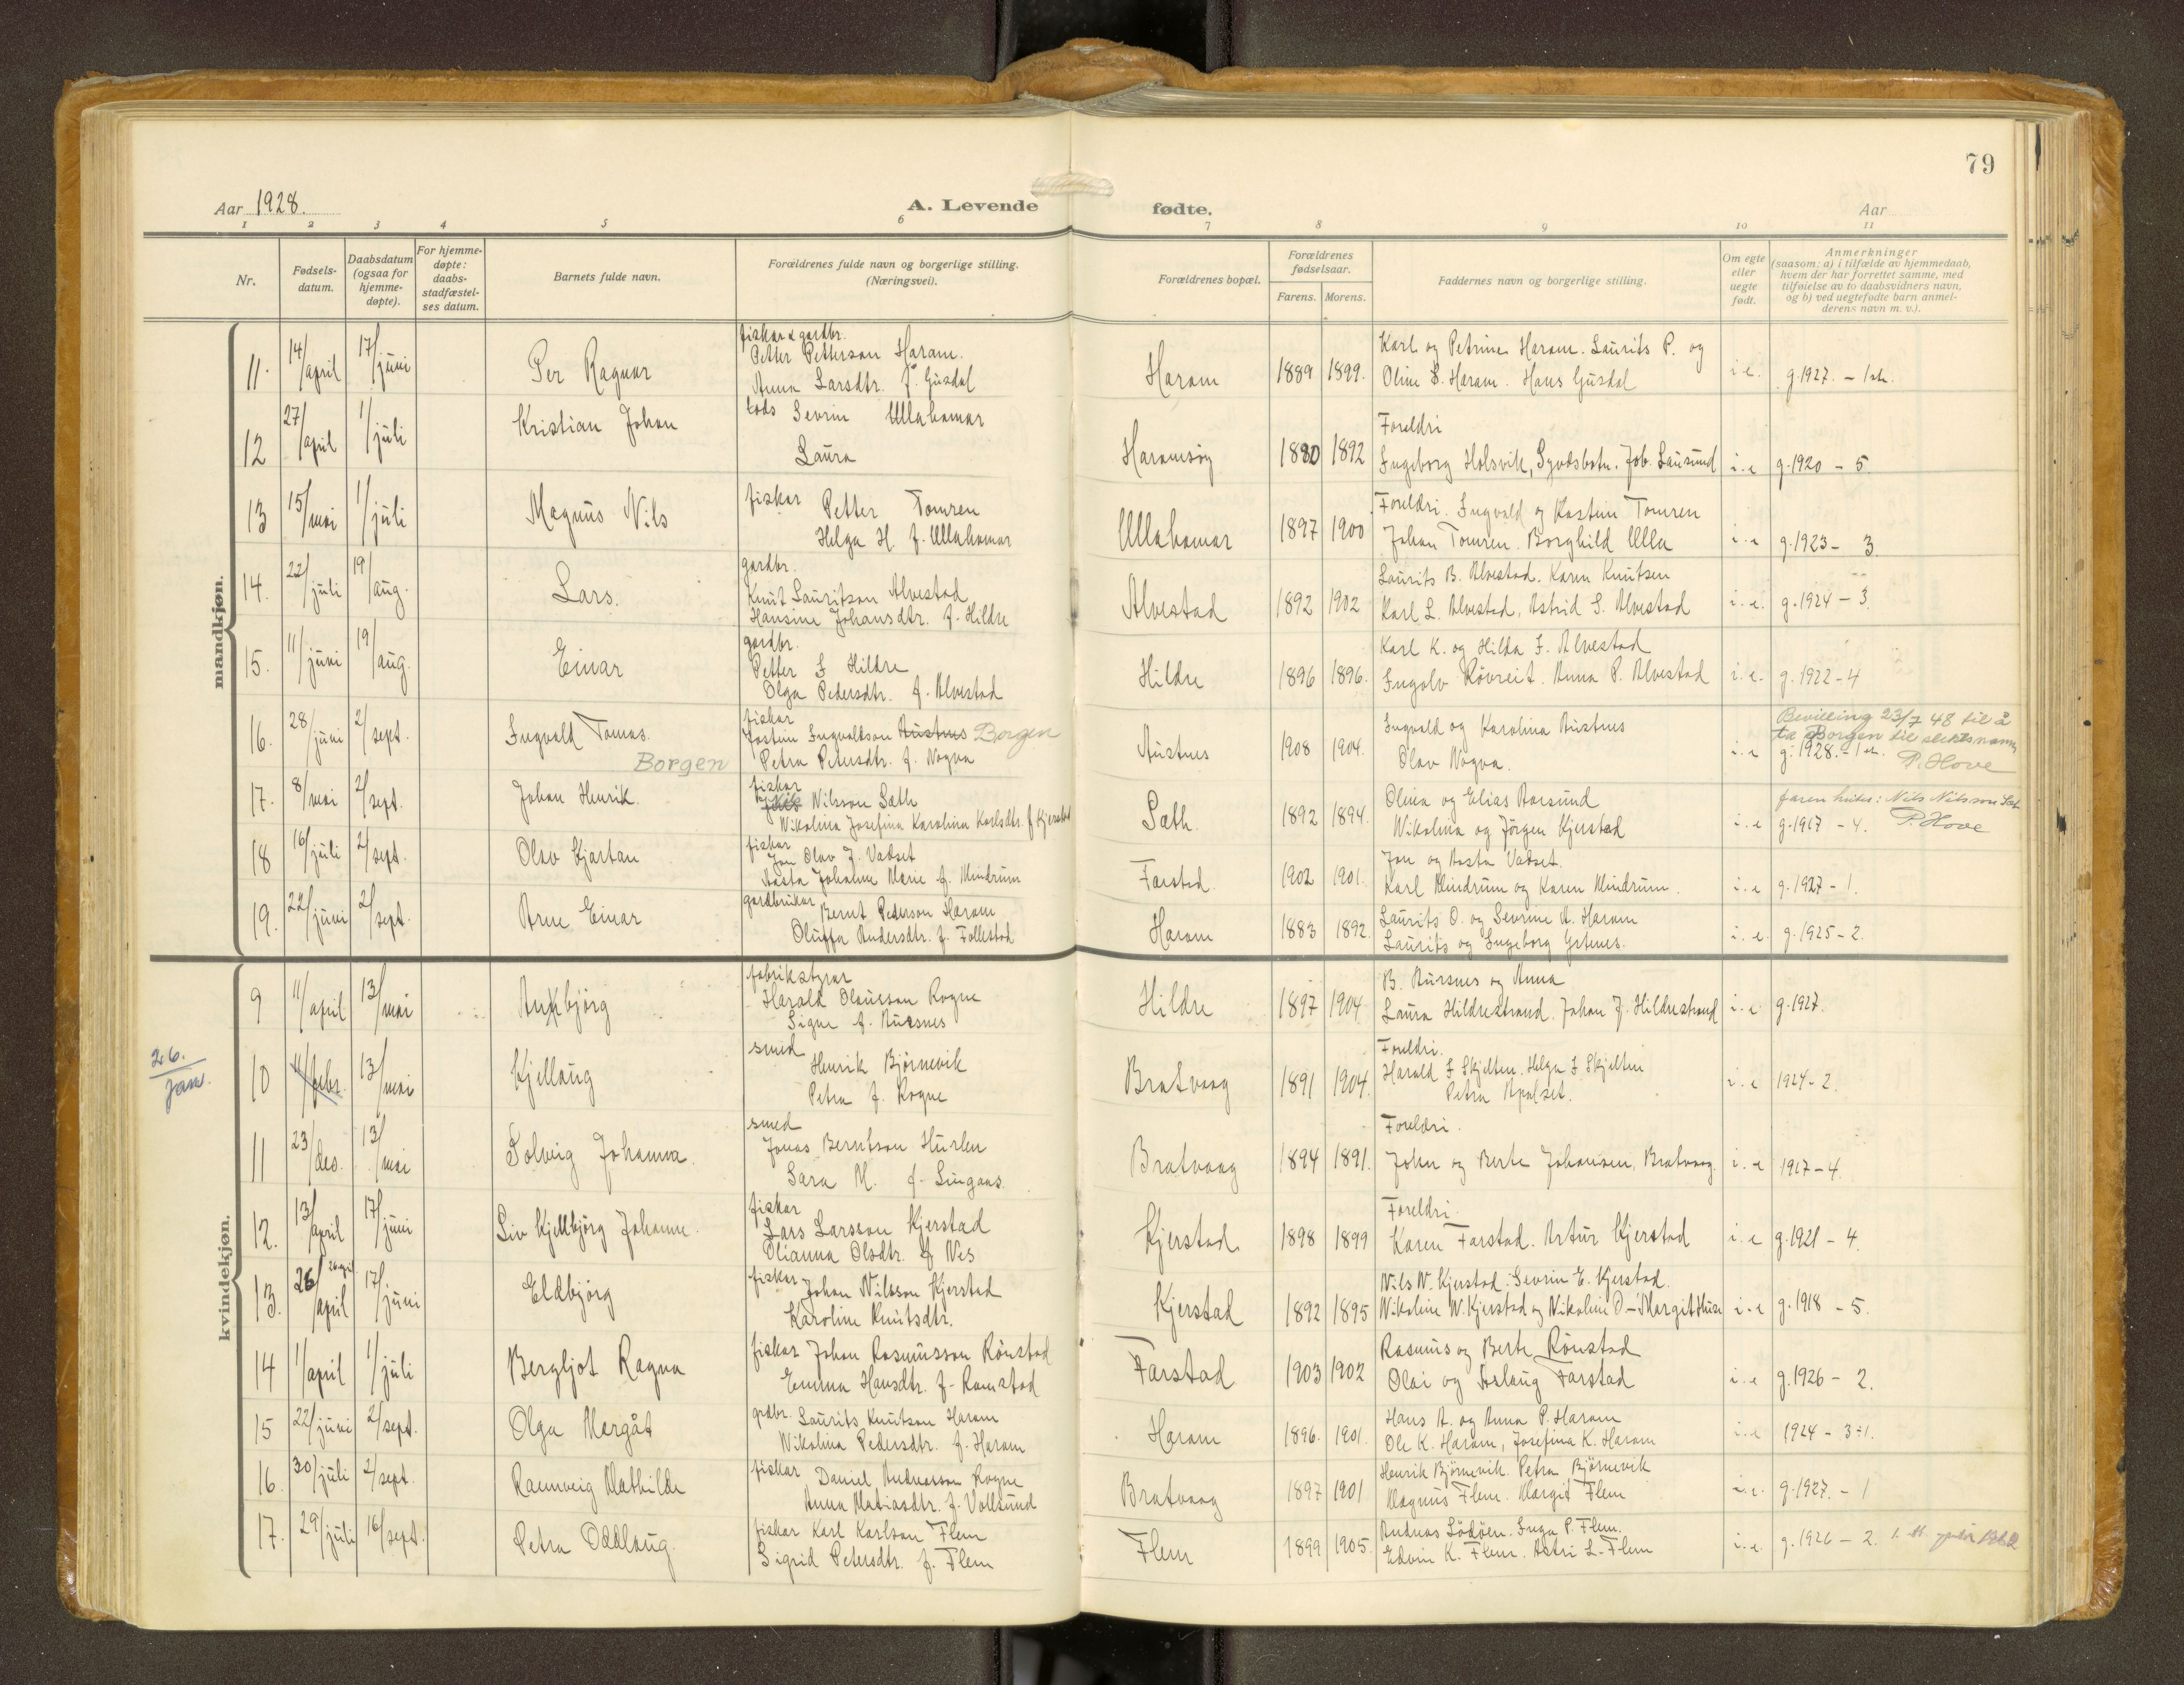 79
Aar 1928.
A. Levende fødte.
Aar
1 2 3 4 5 6 7 8 9 10 11
Nr.
Fødsels-
datum.
Daabsdatum
(ogsaa for
hjemme-
døpte).
For hjemme-
døpte:
daabs-
stadfæstel-
ses datum.
Barnets fulde navn.
Forældrenes fulde navn og borgerlige stilling.
(Næringsvei).
Forældrenes bopæl.
Forældrenes
fødselsaar.
Farens. Morens.
Faddernes navn og borgerlige stilling.
Om egte
eller
uegte
født.
Anmerkninger
(saasom: a) i tilfælde av hjemmedaab,
hvem der har forrettet samme, med
tilføielse av to daabsvidners navn,
og b) ved uegtefødte barn anmel-
derens navn m. v.).
mandkjøn.
fiskar & gardbr.
11. 14/april 17/juni Per Ragnar Petter Petterson Haram. Haram 1889 1899. Karl og Petrine Haram. Laurits P. og i.e. g.1927. -
Anna Larsdtr. f. Gusdal Oline S. Haram. Hans Gusdal
12 27/april 1/juli Kristian Johan Sevrin Ullahamar Haramsøy 1880 1892 Foreldri i.e g.1920 - 5
Laura Ingeborg Holsvik, Syvdsbotn. Job. Lausund
13 15/mai 1/juli Magnus Nils fiskar Petter Tomren Ullahamar 1897 1900 Foreldri. Ingvald og Kastine Tomren i.e g.1923 - 3.
Helga H. f. Ullahamar Johan Tomren. Borghild Ulla
gardbr.
14. 22/juli 19/aug. Lars. Knut Lauritson Alvestad Alvestad 1892 1902 Laurits B. Alvestad. Karen Knutsen i.e. g.1924 - 3.
Hansine Johansdtr. f. Hildre Karl L. Alvestad, Astrid S. Alvestad
gardbr.
15. 11/juni 19/aug. Einar Petter I Hildre Hildre 1896 1896. Karl K. og Hilda I. Alvestad i.e. g.1922-4
Olga Pedersdtr. f. Alvestad Ingolv Røvreit. Anna P. Alvestad
fiskar
16. 28/juni 2/sept. Ingvald Tomas. Jostein Ingvaldson Austnes Borgen Austnes 1908 1904. Ingvald og Karolina Austnes i.e g.1928.-
Borgen Petra Petersdtr. f. Nogva Olav Nogva.
Bevilling 23/7 48 til å
ta Borgen til slektsnamn
P. Hove
fiskar
17. 8/mai 2/sept. Johan Henrik. Nilsson Sæth Sæth. 1892 1894. Olina og Elias Aarsund i.e g.1917 - 4.
Nikolina Josefina Karolina Karlsdtr. f Kjerstad Nikolina og Jørgen Kjerstad
faren heiter: Nils Nilsson Sæt
P. Hove
fiskar
18 16/juli 2/sept. Olav Kjartan Jon Olav J. Vadset Farstad. 1902 1901. Jon og Aasta Vadset. i.e g.1927 - 1.
Aasta Johanne Marie f. Mindrum Karl Mindrum og Karen Mindrum.
gardbrukar
19. 22/juni 2/sept. Arne Einar Bernt Pederson Haram Haram 1883 1892. Laurits O. og Sevrine A. Haram i.e. g.1925-2.
Oluffa Andersdtr. f. Follestad Laurits og Ingeborg Grtenes.
kvindekjøn.
fabrikstyrar
9 11/april 13/mai Annbjørg Harald Olausson Rogne Hildre 1897 1904 B. Aursnes og Anna i.e g.1927.
Signe f. Aursnes Laura Hildrestrand. Johan J. Hildrestrand
26./jan.
smed
10 11/febr. 13/mai Kjellaug Henrik Bjørnevik Bratvaag 1891 1904. Foreldri. i.e 1924-2.
Petra f. Rogne Harald I Skjelten. Helga I Skjelten
Petra Apalset.
smed
11 23/des. 13/mai Solveig Johanna. Jonas Berntson Hurlen Bratvaag 1894 1891. Foreldri. i.e 1917-4.
Sara M. f. Lingaas. John og Berte Johansen, Bratvaag.
fiskar
12. 13/april 17/juni Liv Kjellbjørg Johanne. Lars Larsson Kjerstad Kjerstad. 1898 1899 Foreldri. i.e g.1921 - 4.
Olianna Olsdtr. f Nes Karen Farstad. Artur Kjerstad
13. 26/april 26 april 17/juni Eldbjørg fiskar Johan Nilsson Kjerstad Kjerstad 1892 1895 Nils N. Kjerstad. Sevrin E. Kjerstad. i.e g.1918 - 5.
Karoline Knutsdtr. Nikoline N. Kjerstad og Nikoline O- Margit Huse
14 1/april 1/juli Bergljot Ragna fiskar Johan Rasmusson Rønstad Farstad 1903 1902 Rasmus og Berte Rønstad i.e g.1926 - 2.
Emma Hansdtr. f. Ramstad Olai og Aslaug Farstad
15 22/juni 2/sept. Olga Margåt grdbr. Laurits Knutson Haram Haram 1896. 1901. Hans A. og Anna P. Haram i.e 1924 - 3÷1.
Nikolina Pedersdtr. f. Haram Ole K. Haram, Josefina K. Haram
16. 30/juli 2/sept. Raunveig Mathilde fiskar Daniel Andreasson Rogne Bratvaag 1897 1901 Henrik Bjørnevik. Petra Bjørnevik i.e. g.1927. - 1
Anna Matiasdtr. f. Vollsund Magnus Flem. Margit Flem
17. 29/juli 16/sept. Petra Oddlaug. fiskar Karl Karlson Flem Flem 1899 1905. Andreas Lødøen. Inga P. Flem. i.e. g.1926 - 2.
Sigrid Petersdtr. f. Flem Edvin K. Flem. Astri L. Flem